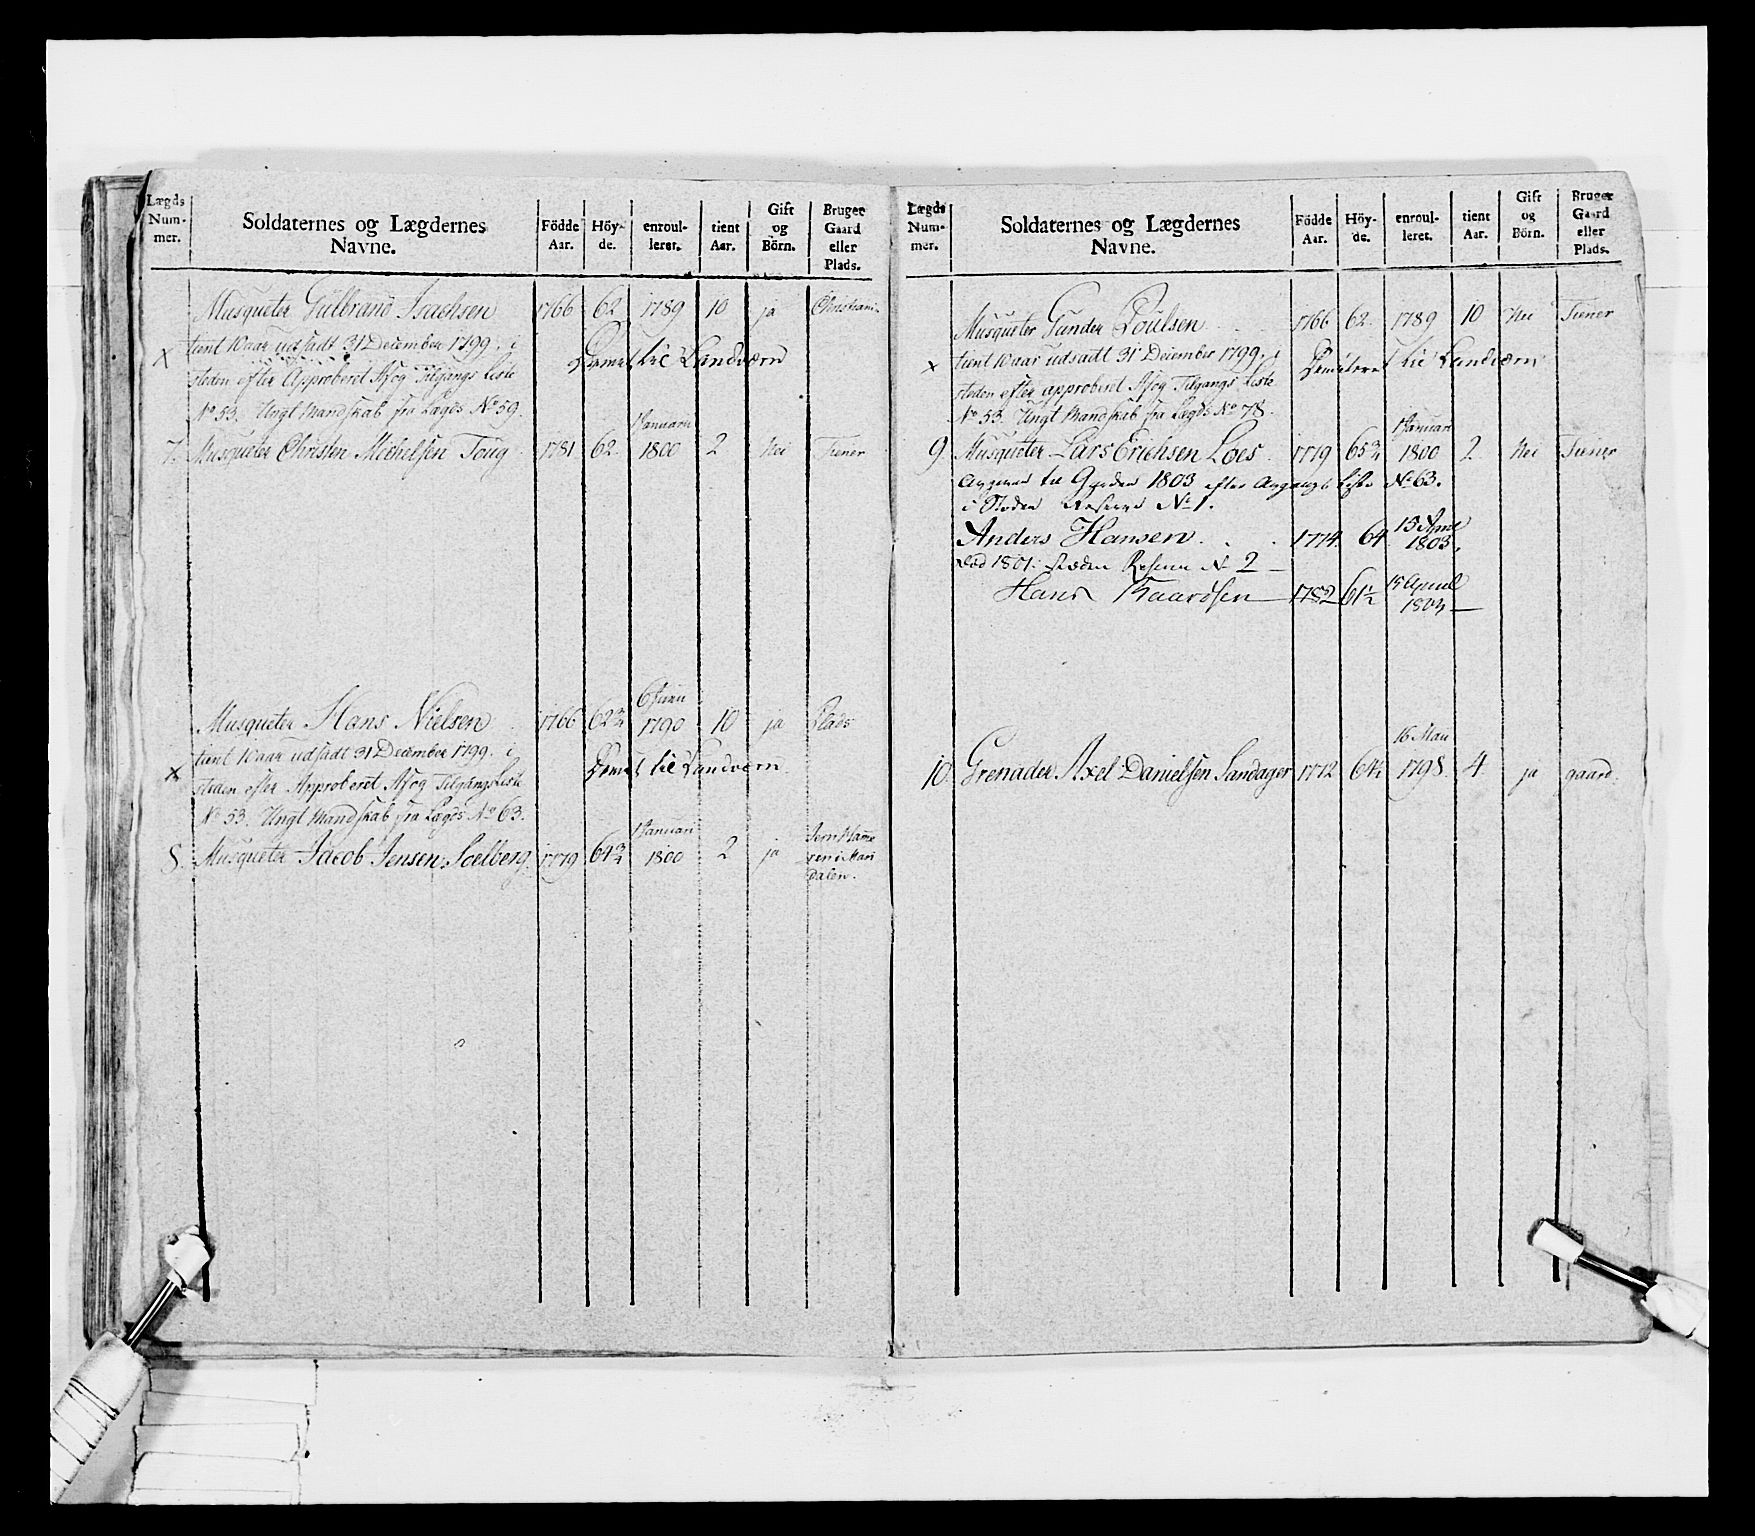 Lægds Num- mer.
Soldaternes og Lægdernes Navne.
Födde Aar.
Höy- de.
enroul- leret.
tient Aar.
Gift og Börn.
Bruger Gaard eller Plads.
Musqueter Gulbrand Isachsen 1766 62 1789 10 ja Christiani-
tient 10 aar udsadt 31 December 1799. i
X til Landværn
steden efter Approberet Af og Tilgangs Liste
No 53. Ungt Mandskab fra Lægds No 59.
1 Januarii
7. Musqueter Christen Michelsen Toug 1781 62 1800 2 Nei Tiener
6 Junii
Musqueter Hans Nielsen 1766 62 3/4 1790 10 ja Plads
tient 10 aar udsadt 31 December 1799. i
X til Landværn
steden efter Approberet Af og Tilgangs Liste
No 53. Ungt Mandskab fra Lægds No 63.
1 Januari
8. Musqueter Jacob Jensen Soelberg 1779 64 3/4 1800 2 ja Jern Hamme
ren i Mari
dalen.
Lægds Num- mer.
Soldaternes og Lægdernes Navne.
Födde Aar.
Höy- de.
enroul- leret.
tient Aar.
Gift og Börn.
Bruger Gaard eller Plads.
Musqueter Gunder Poulsen 1766 62. 1789 10 Nei Tiener
X tient 10 aar udsadt 31 December 1799. i
Demiteret til Landværn
steden efter approberet Af og Tilgangs Liste
No 53. Ungt Mandskab fra Lægds No 78.
1 Januari
9 Musqueter Lars Erichsen Loes 1779 65 3/4 1800 2 Nei Tiener
1803 efter Afgangs Liste No 63.
i Steden Reserve No 1.
Anders Hansen 1774. 64 15 April
1803.
1801. steden Reserve No 2
Hans Baardsen 1782 61 1/2 15 April
1803
16 Mai
10. Grenader Axel Danielsen Sandager 1772 64 1/2 1798. 4 ja gaard.